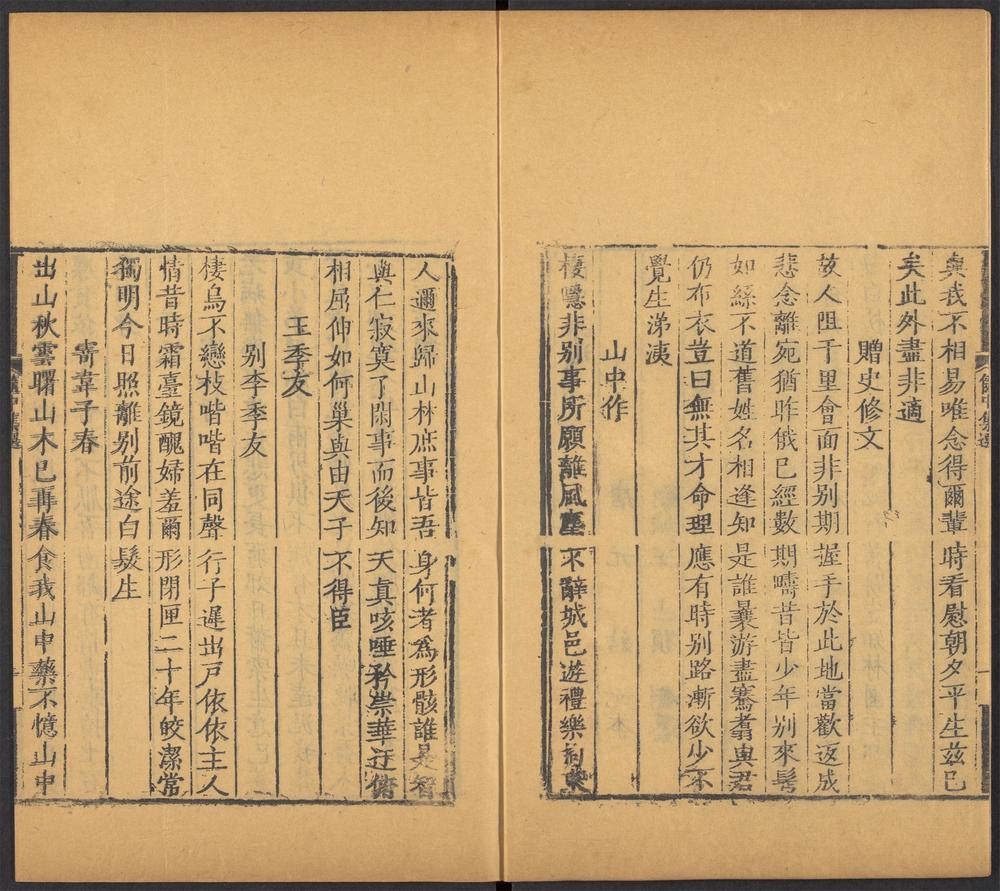 與我不相易唯念得爾輩時看慰朝夕平生茲已
矣此外盡非適
贈史修文
故人阻千里會面非别期握手於此地當歡返成
悲念離宛猶昨俄已經數期疇昔皆少年别來鬂
如絲不道舊姓名相逢知是誰曩游盡騫翥與君
仍布衣豈曰無其才命理應有時别路漸欲少不
覺生涕洟
山中作
棲隱非别事所願離風塵不辭城邑遊禮樂拘束
人邇來歸山林庶事皆吾身何者爲形骸誰是智
與仁寂寞了閑事而後知天真咳唾矜崇華迂俯
相屈伸如何巢與由天子不得臣
王季友
别李季友
棲烏不戀枝喈喈在同聲行子遲出戸依依主人
情昔時霜臺鏡醜婦羞爾形閉匣二十年皎潔常
獨明今日照離别前途白髮生
寄韋子春
出山秋雲曙山木已再春食我山中藥不憶山中
篋中集選